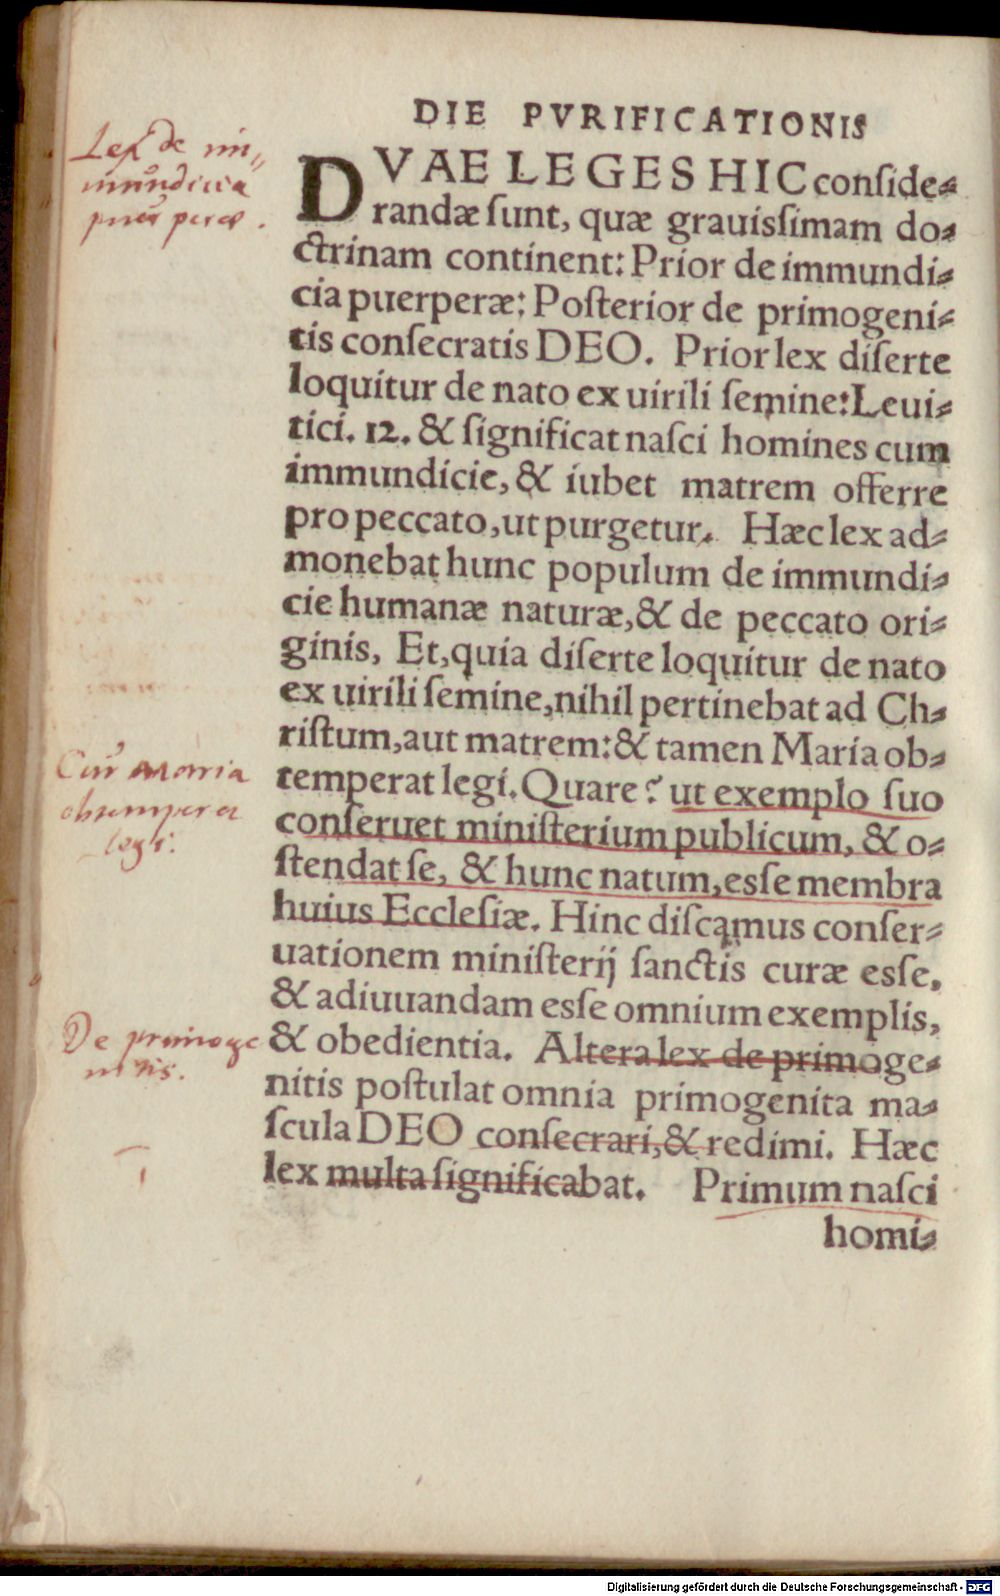 DIE PVRIFICATIONIS
DVAE LEGES HIC conside⸗
randæ ſunt, quæ grauiſsimam do⸗
ctrinam continent: Prior de immundi⸗
cia puerperæ: Poſterior de primogeni⸗
tis conſecratis DEO. Prior lex diſerte
loquitur de nato ex uirili ſemine: Leui⸗
tici. 12. & ſignificat naſci homines cum
immundicie, & iubet matrem offerre
pro peccato, ut purgetur. Hæc lex ad⸗
monebat hunc populum de immundi⸗
cie humanæ naturæ, & de peccato ori⸗
ginis, Et, quia diſerte loquitur de nato
ex uirili ſemine, nihil pertinebat ad Ch⸗
riſtum, aut matrem: & tamen Maria ob⸗
temperat legi. Quare? ut exemplo ſuo
conſeruet miniſterium publicum, & o⸗
ſtendat ſe, & hunc natum, eſſe membra
huius Eccleſiæ. Hinc diſcamus conſer⸗
uationem miniſterij ſanctis curæ eſſe,
& adiuuandam eſſe omnium exemplis,
& obedientia. Altera lex de primoge⸗
nitis poſtulat omnia primogenita ma⸗
ſcula DEO conſecrari, & redimi. Hæc
lex multa ſignificabat. Primum naſci
homi⸗
Lex de im
mundicia
puer peræ.
Cur Maria
obtemperet
legi.
De primoge
nitis.
Digitalisierung gefördert durch die Deutsche Forschungsgemeinschaft - DFG